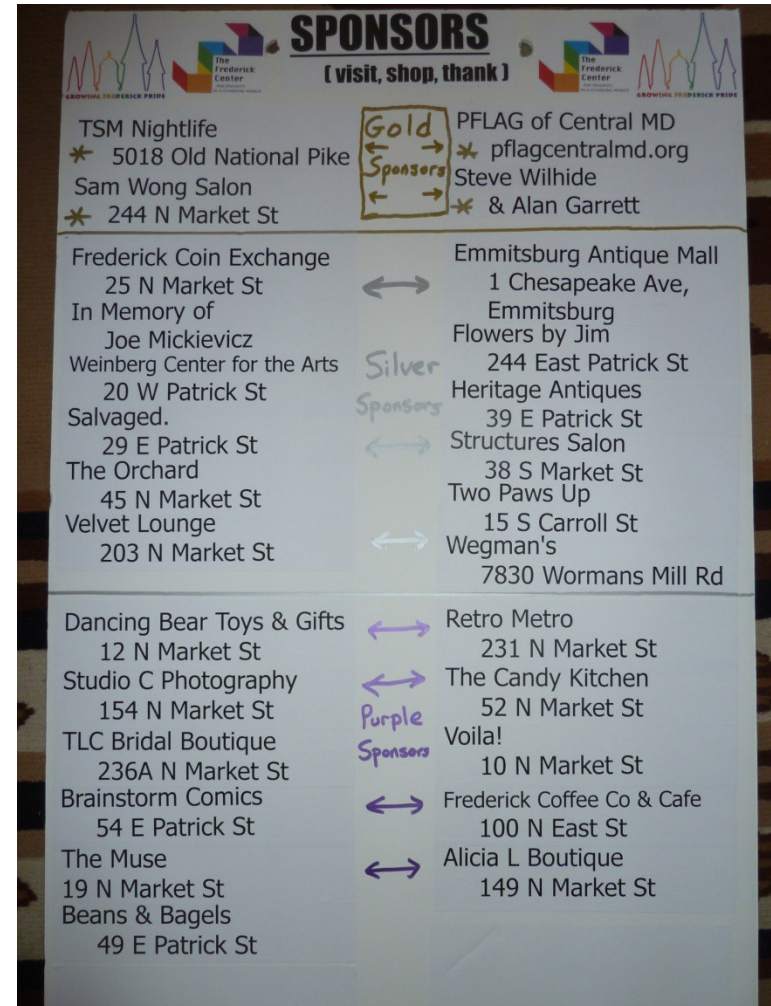 SPONSORS
( visit, shop, thank )
GROWING FREDERICK PRIDE
The
Frederick
Center
The
Frederick
Center
GROWING FREDERICK PRIDE
Gold
Sponsors
TSM Nightlife
5018 Old National Pike
Sam Wong Salon
244 N Market St
PFLAG of Central MD
pflagcentralmd.org
Steve Wilhide
& Alan Garrett
Silver
Sponsors
Frederick Coin Exchange
25 N Market St
In Memory of
Joe Mickievicz
Weinberg Center for the Arts
20 W Patrick St
Salvaged.
29 E Patrick St
The Orchard
45 N Market St
Velvet Lounge
203 N Market St
Emmitsburg Antique Mall
1 Chesapeake Ave,
Emmitsburg
Flowers by Jim
244 East Patrick St
Heritage Antiques
39 E Patrick St
Structures Salon
38 S Market St
Two Paws Up
15 S Carroll St
Wegman's
7830 Wormans Mill Rd
Purple
Sponsors
Dancing Bear Toys & Gifts
12 N Market St
Studio C Photography
154 N Market St
TLC Bridal Boutique
236A N Market St
Brainstorm Comics
54 E Patrick St
The Muse
19 N Market St
Beans & Bagels
49 E Patrick St
Retro Metro
231 N Market St
The Candy Kitchen
52 N Market St
Voila!
10 N Market St
Frederick Coffee Co & Cafe
100 N East St
Alicia L Boutique
149 N Market St